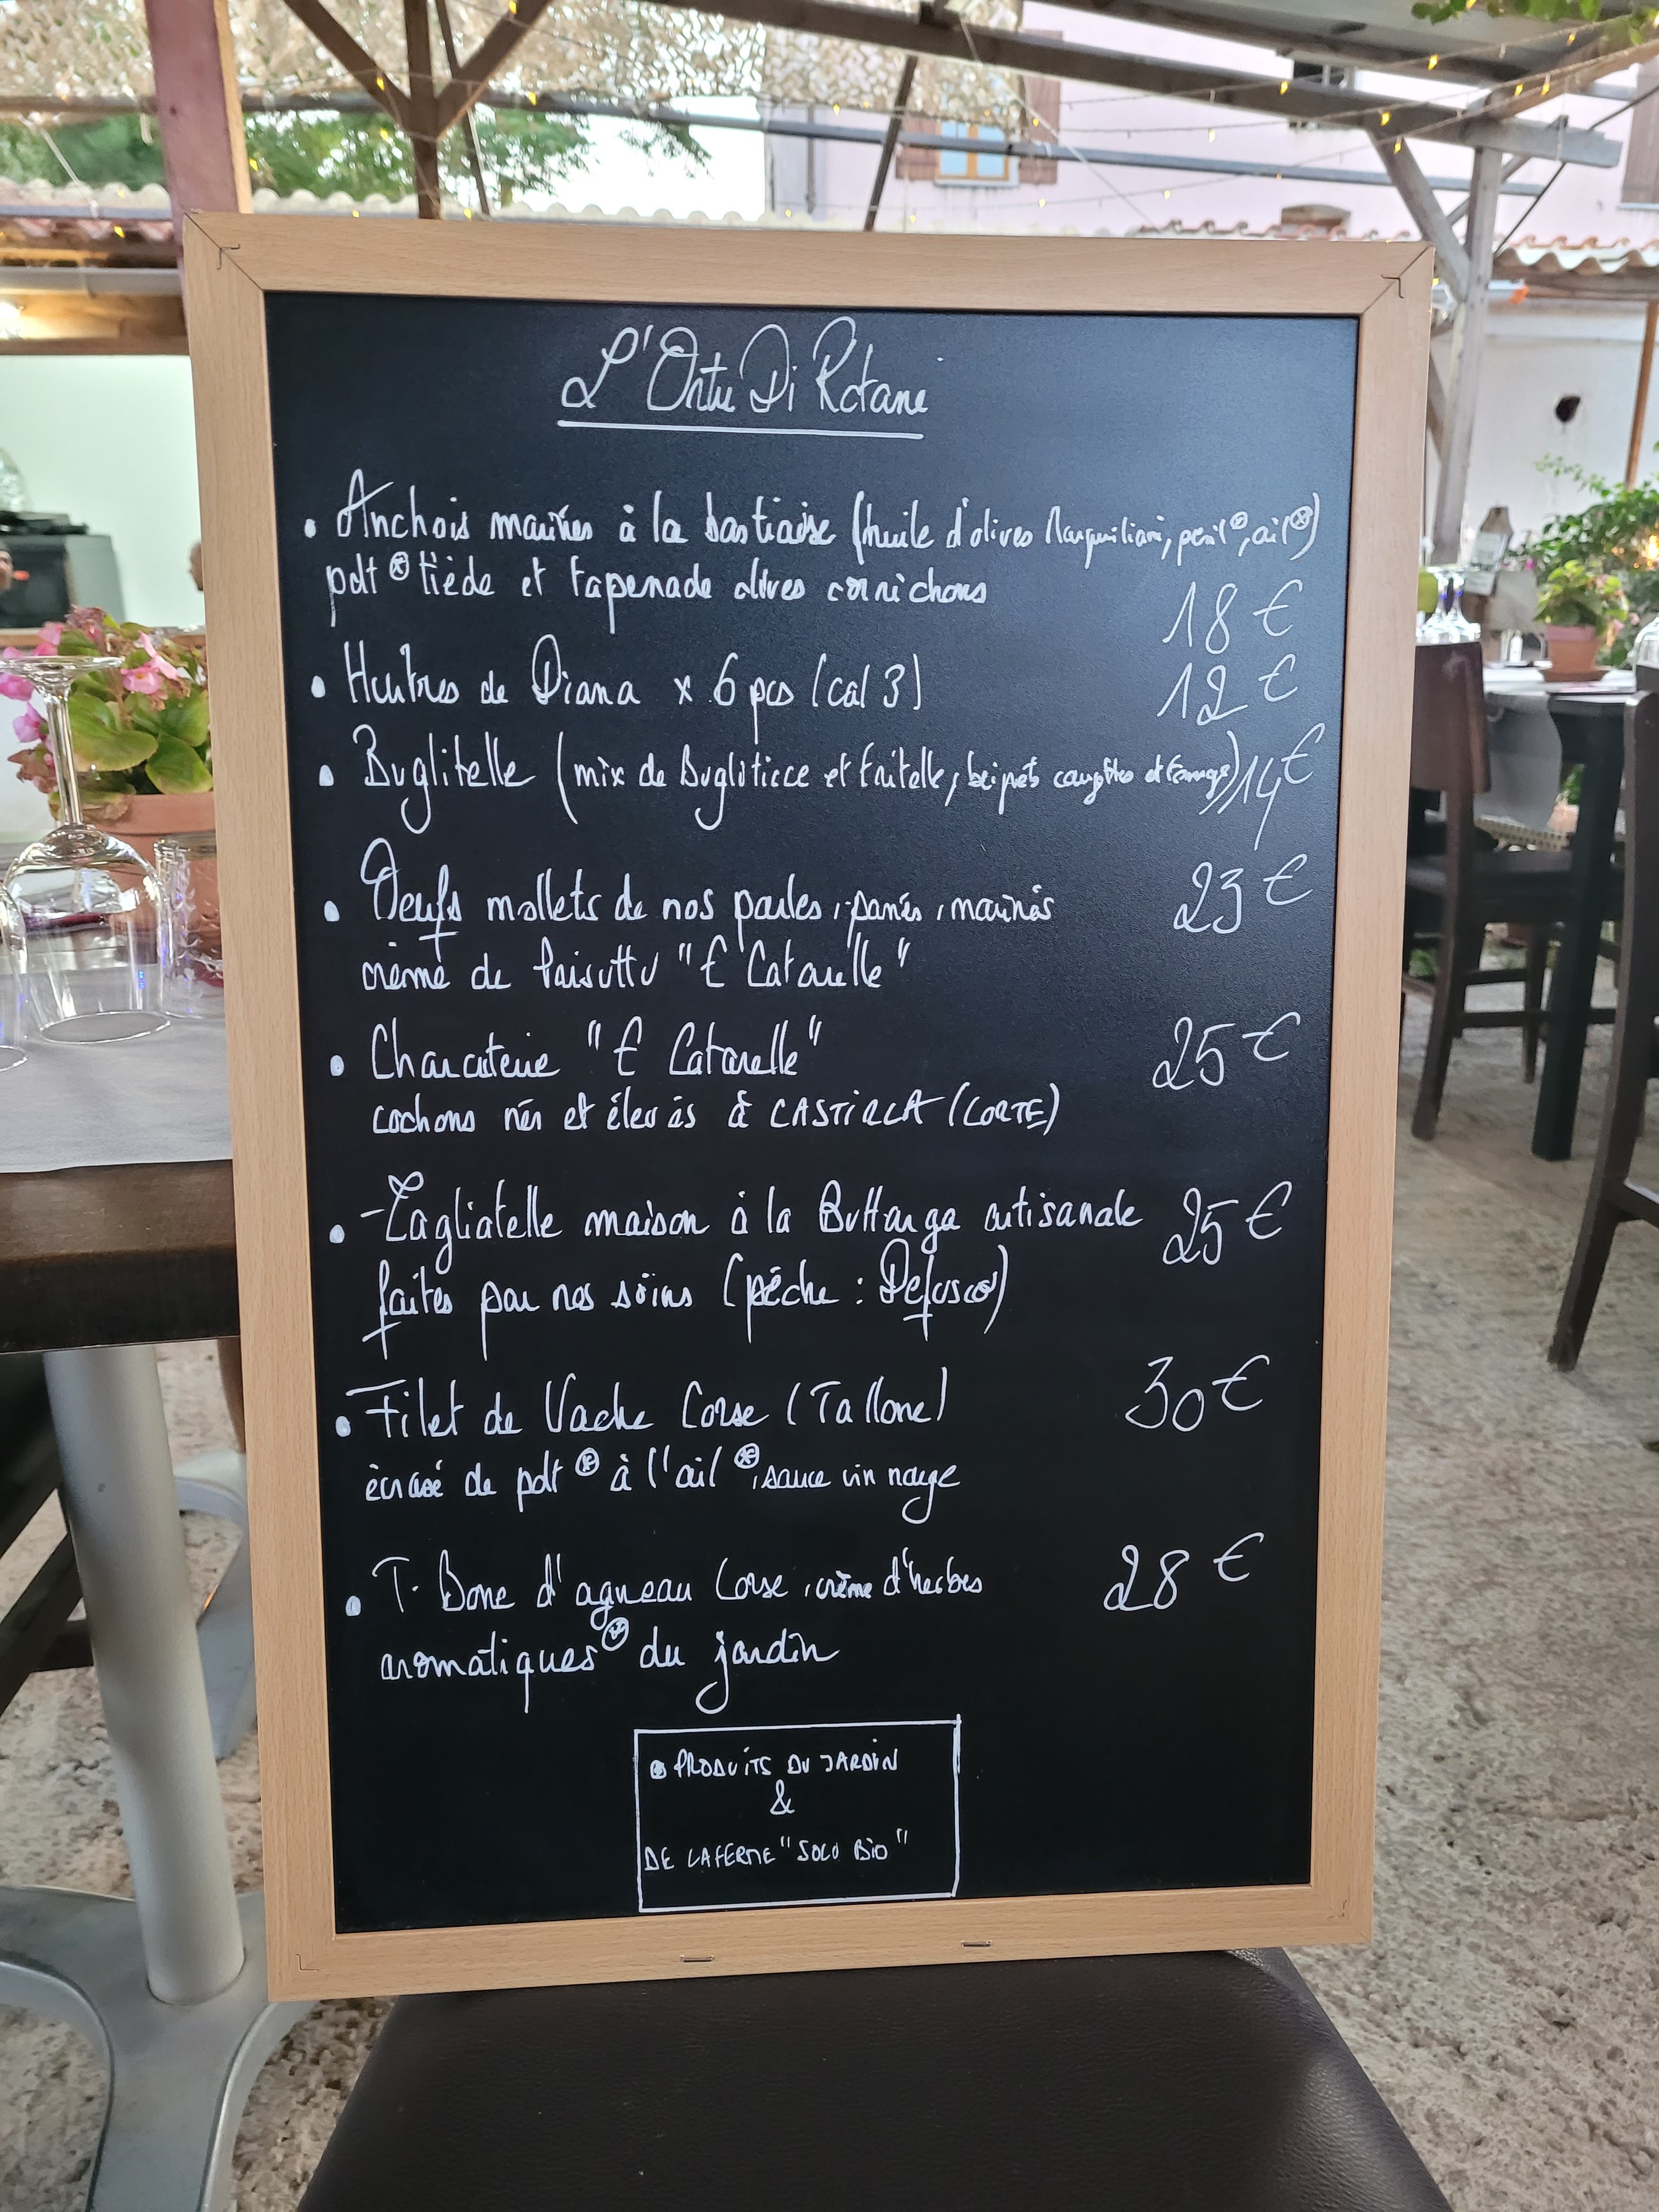 L'Ortu Di Rotani
• Anchois marinés à la bastiaise (huile d'olives, persil ⊛, ail ⊛)
pdt ⊛ tiède et tapenade olives cornichons
18 €
• Huitres de Diana x 6 pcs (cal 3) 12 €
• Buglitelle (mix de Bugloticce et fritelle, beignets courgettes et fromage) 14 €
• Oeufs mollets de nos poules, panés, marinés 23 €
crème de Prisuttu "E Catarelle"
• Charcuterie "E Catarelle" 25 €
cochons nés et élevés à CASTIRLA (CORTE)
• Tagliatelle maison à la Buttarga artisanale 25 €
faites par nos soins (pêche : Defusco)
• Filet de Vache Corse (Tallone) 30 €
écrasé de pdt ⊛ à l'ail ⊛, sauce vin rouge
• T. Bone d'agneau Corse, crème d'herbes 28 €
aromatiques ⊛ du jardin
⊛ PRODUITS DU JARDIN
&
DE LA FERME "SOLO BIO"